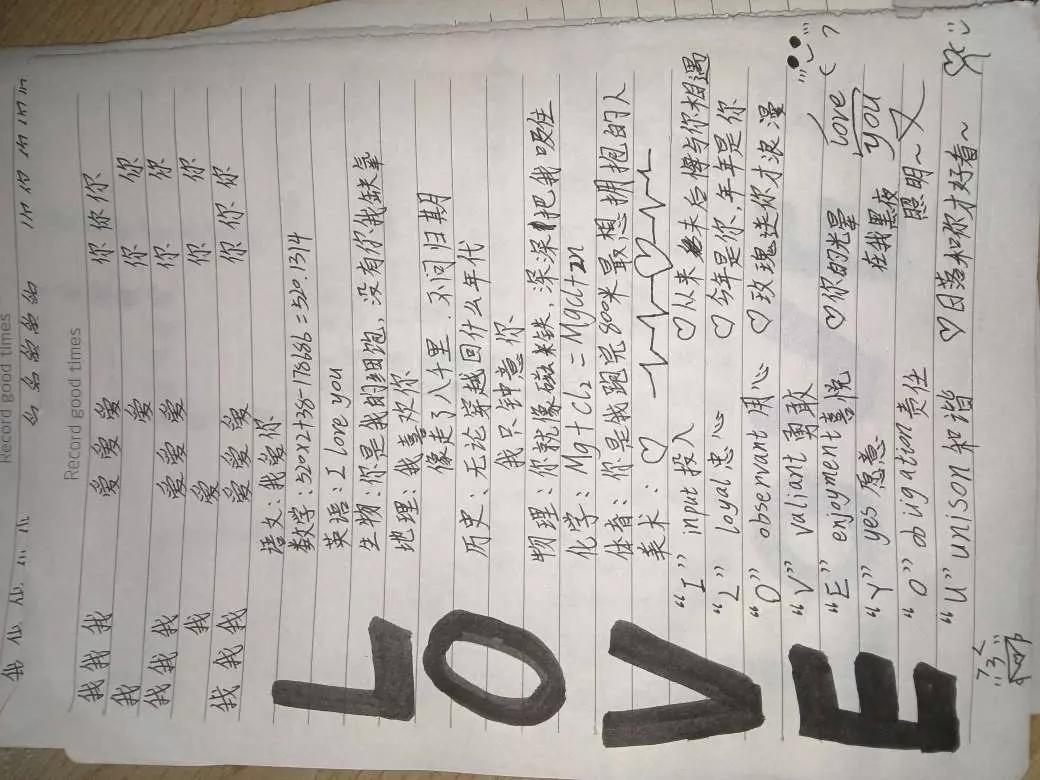 Record good times
Record good times
我 我 我 爱 爱 爱 你 你 你
我 爱 你 你
我 我 我 爱 爱 爱 你 你
我 爱 你 你
我 我 我 爱 爱 爱 你 你 你
语文：我爱你
数学：520x2+38-178686=520.134
英语：I love you
生物：你是我的细胞，没有你我缺氧
地理：我喜欢你
像走了八千里．不问归期
历史：无论穿越回什么年代
我只钟意你
物理：你就像磁铁，深深把我吸住
化学：Mg+Cl₂=Mgcl+zn
体育：你是我跑完800米最想拥抱的人
美术：♡
“I” input 投入 ♡从来未后悔与你相遇
“L” loyal 忠心 ♡今年是你、年年是你
“O” observant 用心 ♡玫瑰送你才浪漫
“V” valiant 勇敢
“E” enjoyment喜悦 ♡你的光晕 love
“Y” yes 愿意 在我黑夜 you
“O” obigation 责任 照明~
“U” unison 和谐 ♡日落和你才好看~
LOVE